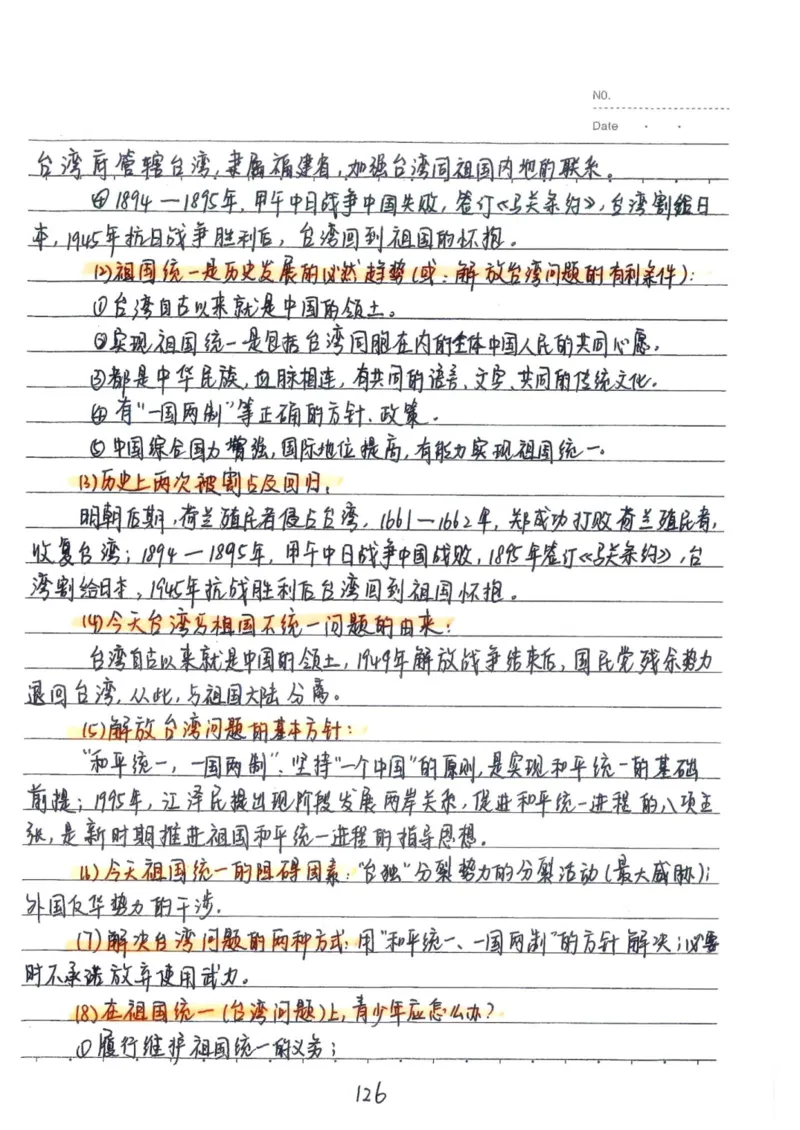 NO.
Date
台湾府管辖台湾,隶属福建省,加强台湾同祖国内地的联系。
④1894—1895年,甲午中日战争中国失败,签订《马关条约》,台湾割给日
本,1945年抗日战争胜利后,台湾回到祖国的怀抱。
(2)祖国统一是历史发展的必然趋势(或:解放台湾问题的有利条件):
①台湾自古以来就是中国的领土。
②实现祖国统一是包括台湾同胞在内的全体中国人民的共同心愿。
③都是中华民族,血脉相连,有共同的语言、文字、共同的传统文化。
④有“一国两制”等正确的方针、政策。
⑤中国综合国力增强,国际地位提高,有能力实现祖国统一。
(3)历史上两次被割占及回归:
明朝后期,荷兰殖民者侵占台湾,1661—1662年,郑成功打败荷兰殖民者,
收复台湾;1894—1895年,甲午中日战争中国战败,1895年签订《马关条约》,台
湾割给日本,1945年抗战胜利后台湾回到祖国怀抱。
(4)今天台湾与祖国不统一问题的由来:
台湾自古以来就是中国的领土,1949年解放战争结束后,国民党残余势力
退回台湾,从此,与祖国大陆分离。
(5)解放台湾问题的基本方针:
“和平统一,一国两制”、坚持“一个中国”的原则,是实现和平统一的基础
前提;1995年,江泽民提出现阶段发展两岸关系,促进和平统一进程的八项主
张,是新时期推进祖国和平统一进程的指导思想。
(6)今天祖国统一的阻碍因素:“台独”分裂势力的分裂活动(最大威胁);
外国反华势力的干涉.
(7)解决台湾问题的两种方式:用“和平统一、一国两制”的方针解决;必要
时不承诺放弃使用武力。
(8)在祖国统一(台湾问题)上,青少年应怎么办?
①履行维护祖国统一的义务;
126